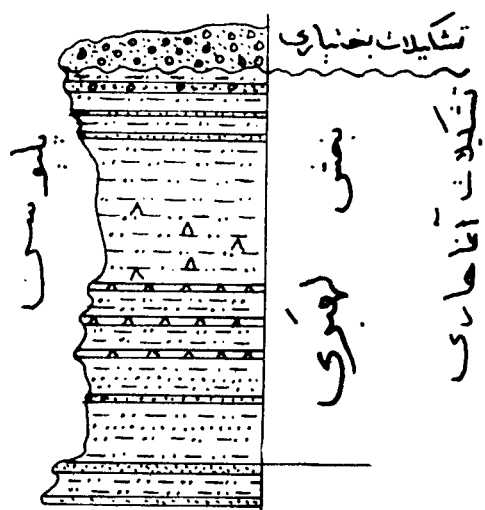 تشکیلات بختیاری
تشکیلات آغاجاری
بخش لهبری
پلیوسن